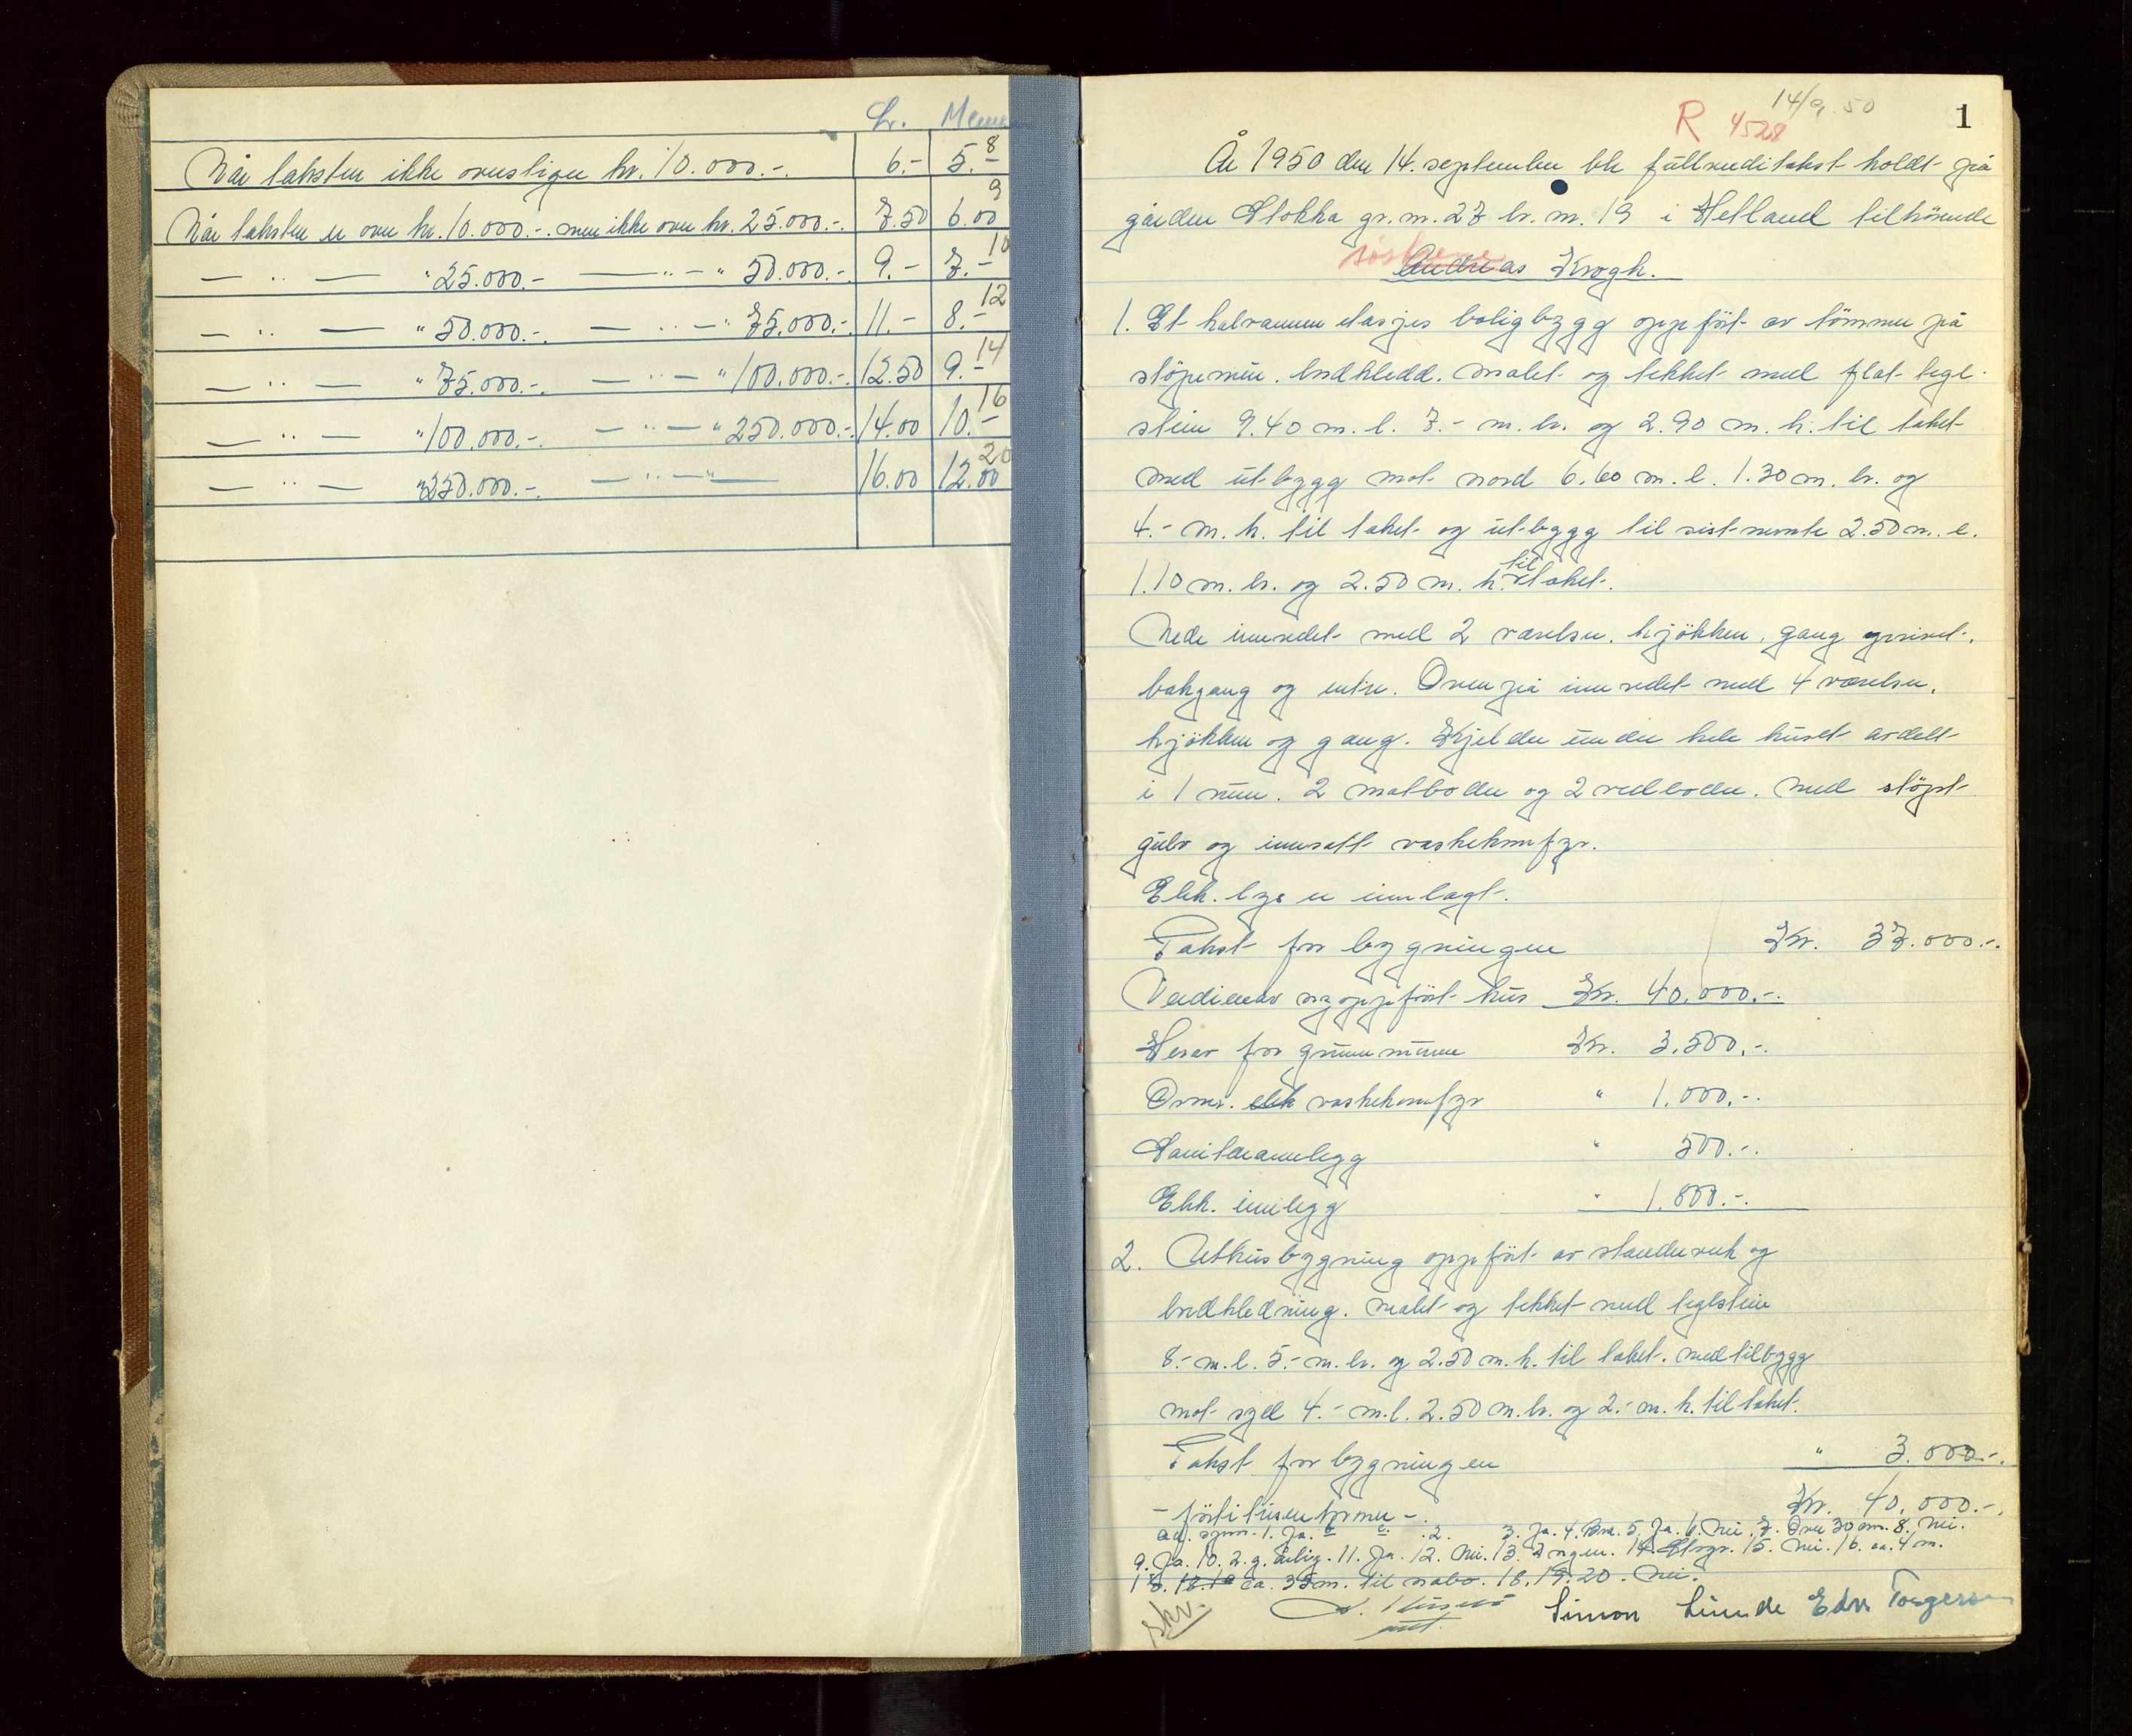 Lr. Menn
Når taksten ikke overstiger kr. 10.000.-. 6.- 5.- 8
Når taksten er over kr. 10.000.-. men ikke over kr. 25.000.-. 7.50 6.00 9
— " — " 25.000.- — " — " 50.000.-. 9.- 7.- 10
— " — " 50.000.-. — " — " 75.000.-. 11.- 8.- 12
— " — " 75.000.-. — " — " 100.000.-. 12.50 9.- 14
— " — " 100.000.-. — " — " 250.000.-. 14.00 10.- 16
— " — " 250.000.-. — " — " — 16.00 12.00 20
14/9.50
R 4528
1
År 1950 den 14. september ble fullverditakst holdt på
gården Stokka gr.nr. 27 br.nr. 19 i Hetland tilhørende
søsknene
Andreas Krogh.
1. Et halvannen etasjes boligbygg oppført av tømmer på
støpemur. bordkledd. malet og tekket med flat tegl-
stein 9.40 m. l. 7.- m. br. og 2.90 m. h. til taket
med utbygg mot nord 6.60 m. l. 1.30 m. br. og
4.- m. h. til taket og utbygg til sistnevnte 2.50 m. l.
1.10 m. br. og 2.50 m. h. til taket.
Nede innredet med 2 værelser. kjøkken, gang privet.
bakgang og entre. Ovenpå innredet med 4 værelser.
kjøkken og gang. Kjelder under hele huset avdelt
i 1 rum. 2 matboder og 2 vedboder. med støpt
gulv og innsatt vaskekomfyr.
Elek. lys er innlagt.
Takst for bygningen Kr. 37.000.-.
Verdien av nyoppført hus Kr. 40.000.-.
Herav for grunnmuren Kr. 3.500.-.
Ovner. elek vaskekomfyr " 1.000.-.
Sanitæranlegg " 500.-.
Elek. innlegg " 1.800.-.
2. Uthusbygning oppført av standerverk og
bordkledning. malet og tekket med teglstein
8.- m. l. 5.- m. br. og 2.50 m. h. til taket. med tilbygg
mot syd 4.- m. l. 2.50 m. br. og 2.- m. h. til taket.
Takst for bygningen " 3.000.-.
- førti tusen kroner -. Kr. 40.000.-.
ad. spm. 1. Ja. 2. 3. Ja. 4. Bra. 5. Ja. 6. Nei. 7. Over 30 cm. 8. Nei.
9. Ja. 10. 2. g. årlig. 11. Ja. 12. Nei. 13. Ingen. 14. 15. Nei. 16. ca. 4 m.
17. ca. 35 m. til nabo. 18. 19. 20. Nei.
skv.
Simon Lunde Edv. Torgersen